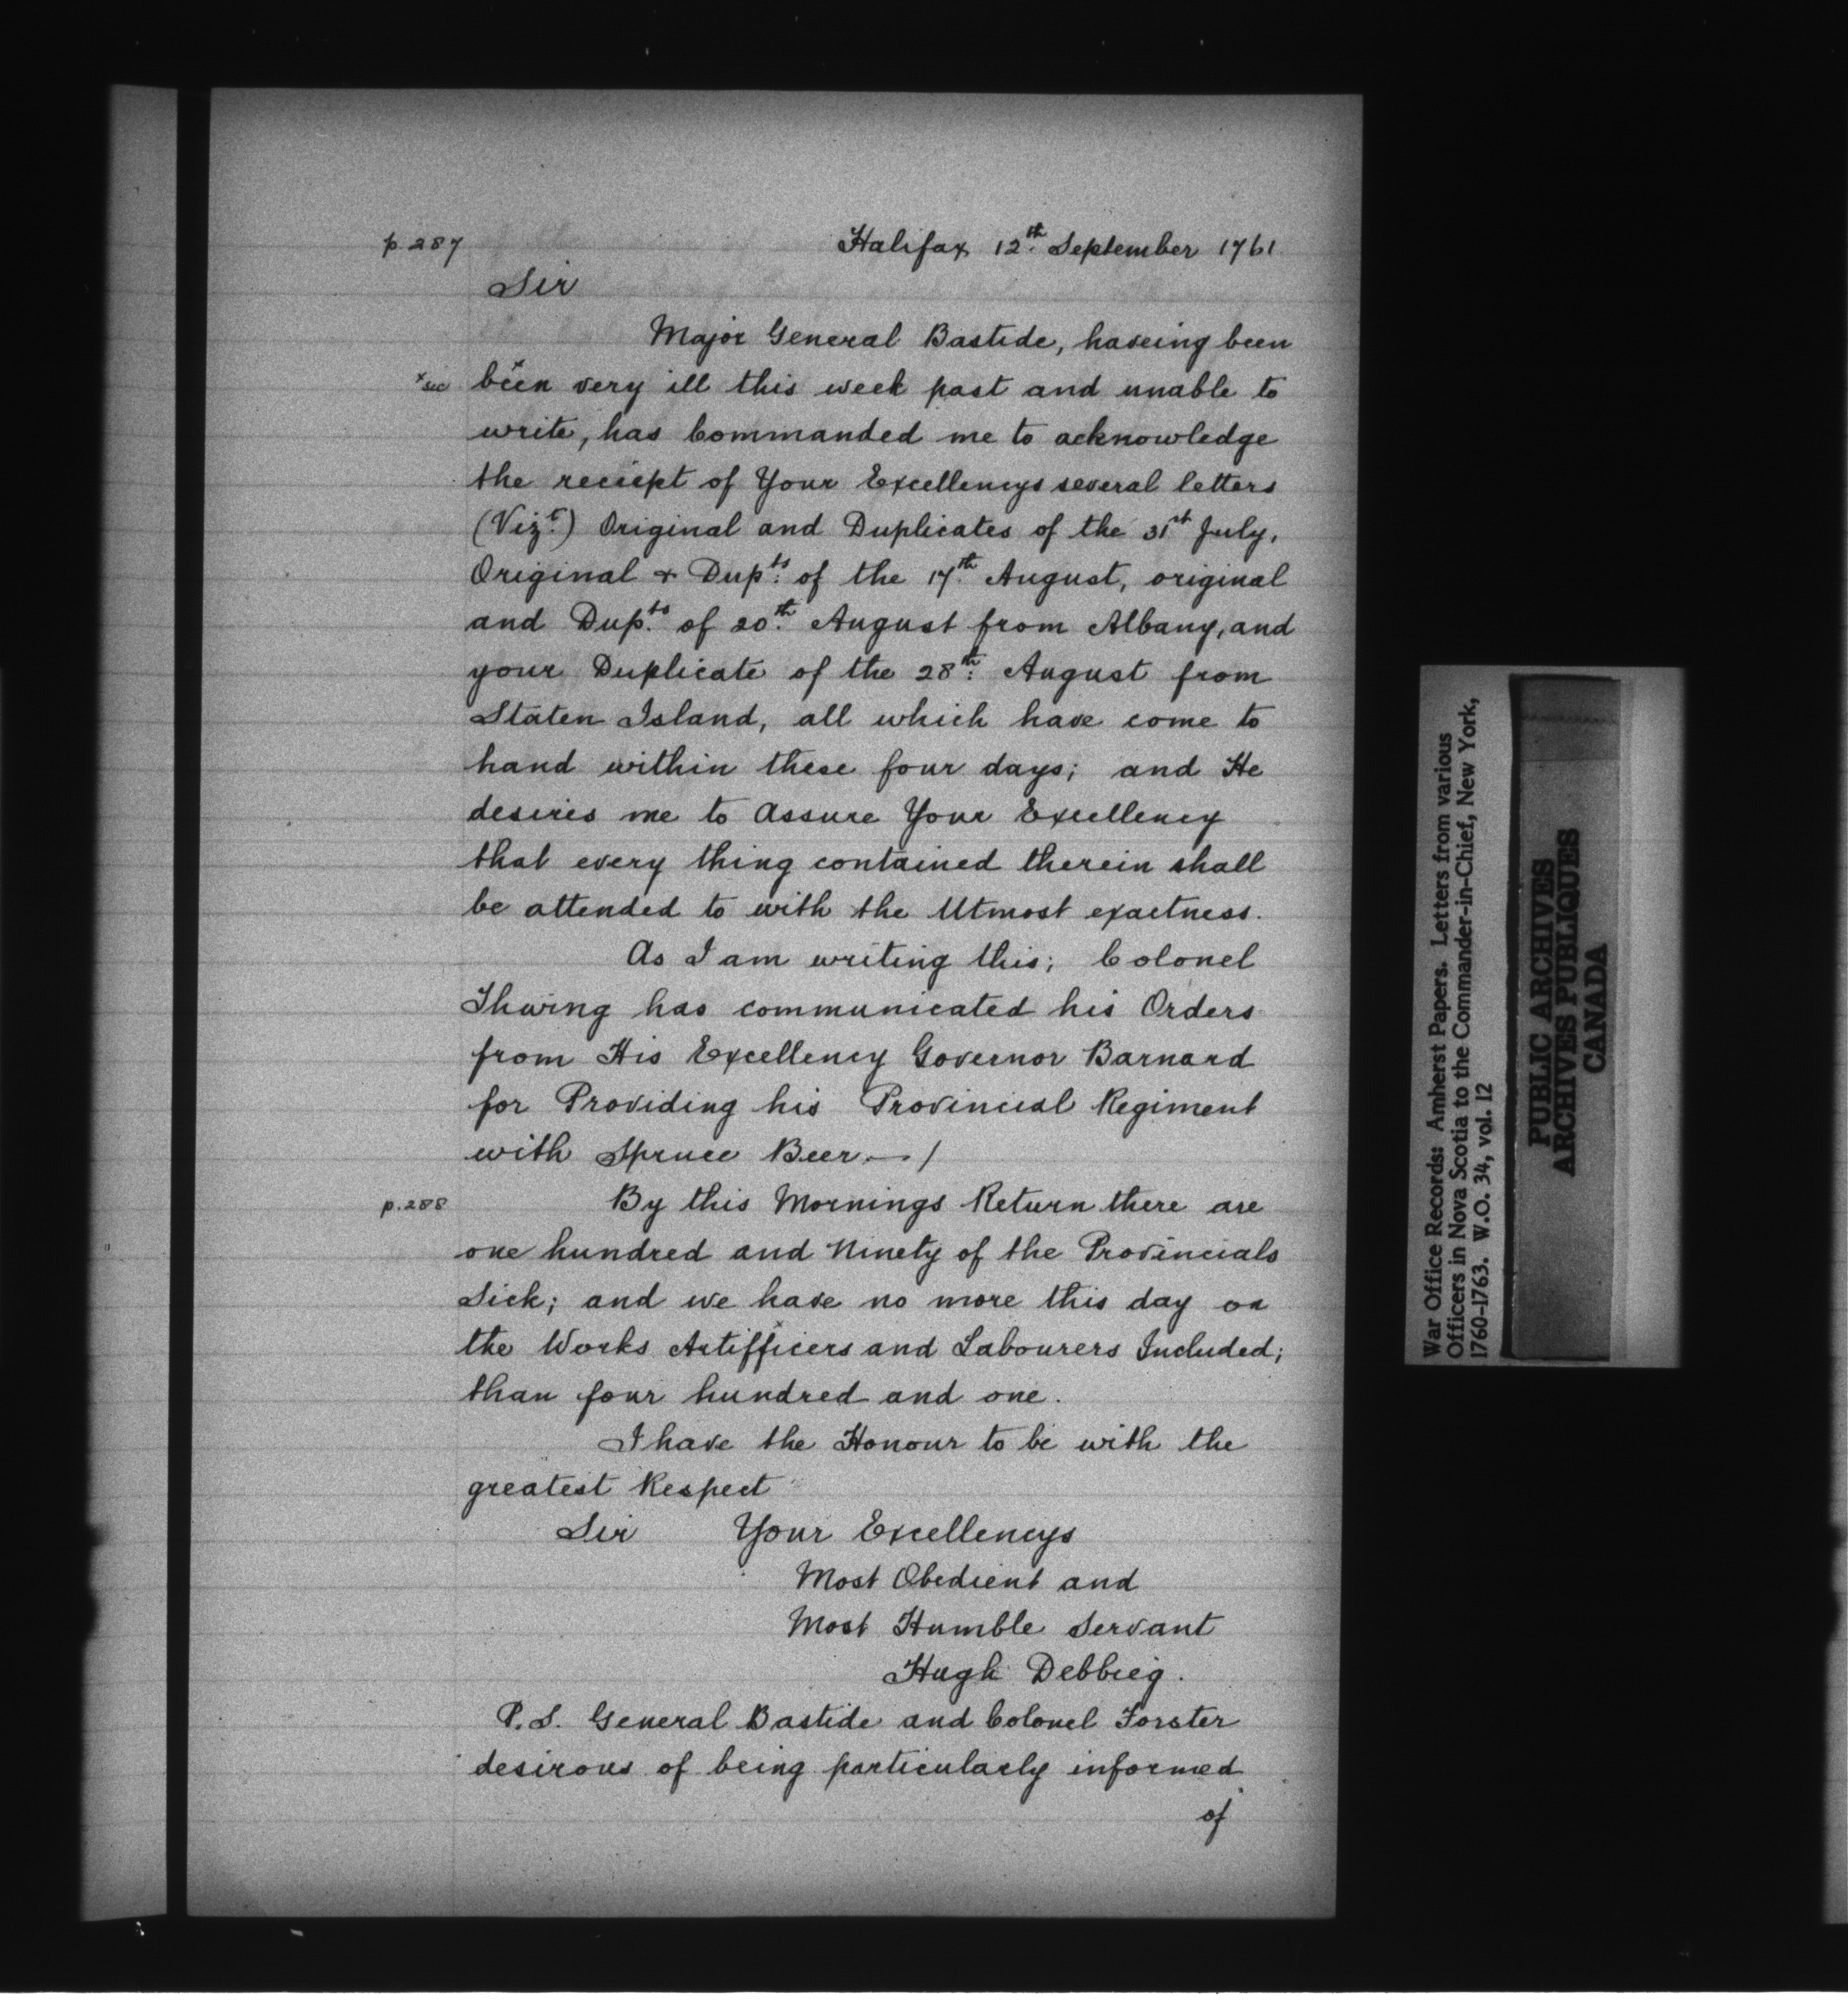 p. 287
Halifax 12th. September 1761
Sir
Major General Bastide, haveing been
x sic
beenx very ill this week past and unable to
write, has Commanded me to acknowledge
the reciept of Your Excellencys several letters
(Vizt.) Original and Duplicates of the 31st July,
Original & Dupts. of the 17th. August, original
and Dupts. of 20th. August from Albany, and
your Duplicate of the 28th. August from
Staten Island, all which have come to
hand within these four days; and He
desires me to Assure Your Excellency
that every thing contained therein shall
be attended to with the Utmost exactness.
As I am writing this; Colonel
Thwing has communicated his Orders
from His Excellency Governor Barnard
for Providing his Provincial Regiment
with Spruce Beer.—/
p. 288
By this Mornings Return there are
one hundred and Ninety of the Provincials
Sick; and we have no more this day on
the Works Artifficers and Labourers Included;
than four hundred and one.
I have the Honour to be with the
greatest Respect
Sir Your Excellencys
Most Obedient and
Most Humble Servant
Hugh Debbieg.
P.S. General Bastide and Colonel Forster
desirous of being particularly informed
of
War Office Records: Amherst Papers. Letters from various
Officers in Nova Scotia to the Commander-in-Chief, New York,
1760-1763. W.O. 34, vol. 12
PUBLIC ARCHIVES
ARCHIVES PUBLIQUES
CANADA